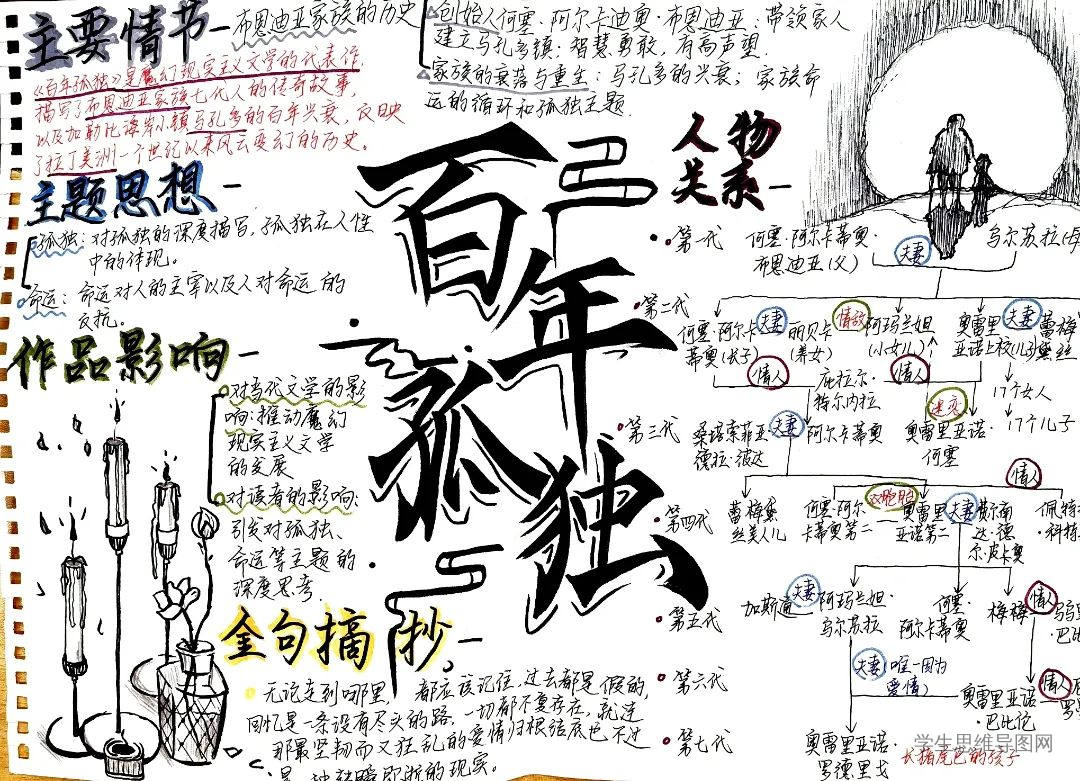 主要情节-布恩迪亚家族的历史
《百年孤独》是魔幻现实主义文学的代表作,
描写了布恩迪亚家族七代人的传奇故事,
以及加勒比海岸小镇马孔多的百年兴衰,反映
了拉丁美洲一个世纪以来风云变幻的历史。
创始人何塞·阿尔卡迪奥·布恩迪亚:带领家人
建立马孔多镇.智慧勇敢,有高声望.
家族的衰落与重生:马孔多的兴衰;家族命
运的循环和孤独主题.
主题思想-
孤独:对孤独的深度描写,孤独在人性
中的体现。
命运:命运对人的主宰以及人对命运的
反抗。
作品影响-
对当代文学的影
响:推动魔幻
现实主义文学
的发展
对读者的影响:
引发对孤独、
命运等主题的
深度思考.
百年孤独
金句摘抄-
无论走到哪里,都应该记住.过去都是假的,
回忆是一条没有尽头的路.一切都不复存在,就连
那最坚韧而又狂乱的爱情归根结底也不过
是
瞬即逝的现实。
人物
关系-
第一代
何塞·阿尔卡蒂奥·
布恩迪亚(父)
夫妻
乌尔苏拉
第二代
何塞·阿尔卡
蒂奥(长子)
夫妻
丽贝卡
(养女)
情敌
阿玛兰妲
(小女儿)
奥雷里
亚诺上校(儿子)
夫妻
蕾梅
黛丝
情人
庇拉尔·
特尔内拉
情人
17个女人
17个儿子
第三代
桑塔索菲亚·
德拉·彼达
夫妻
阿尔卡蒂奥
迷恋
奥雷里亚诺·
何塞
第四代
蕾梅黛
丝美人儿
何塞·阿尔
卡蒂奥第二
双胞胎
奥雷里
亚诺第二
夫妻
费尔南
达·德
尔·皮卡奥
情人
佩特
科特
第五代
加斯通
夫妻
阿玛兰妲·
乌尔苏拉
何塞·
阿尔卡蒂奥
梅梅
情人
巴比
第六代
夫妻
唯一因为
爱情)
奥雷里亚诺·
巴比伦
情人
第七代
奥雷里亚诺·
罗德里戈
长猪尾巴的孩子
学生思维导图网